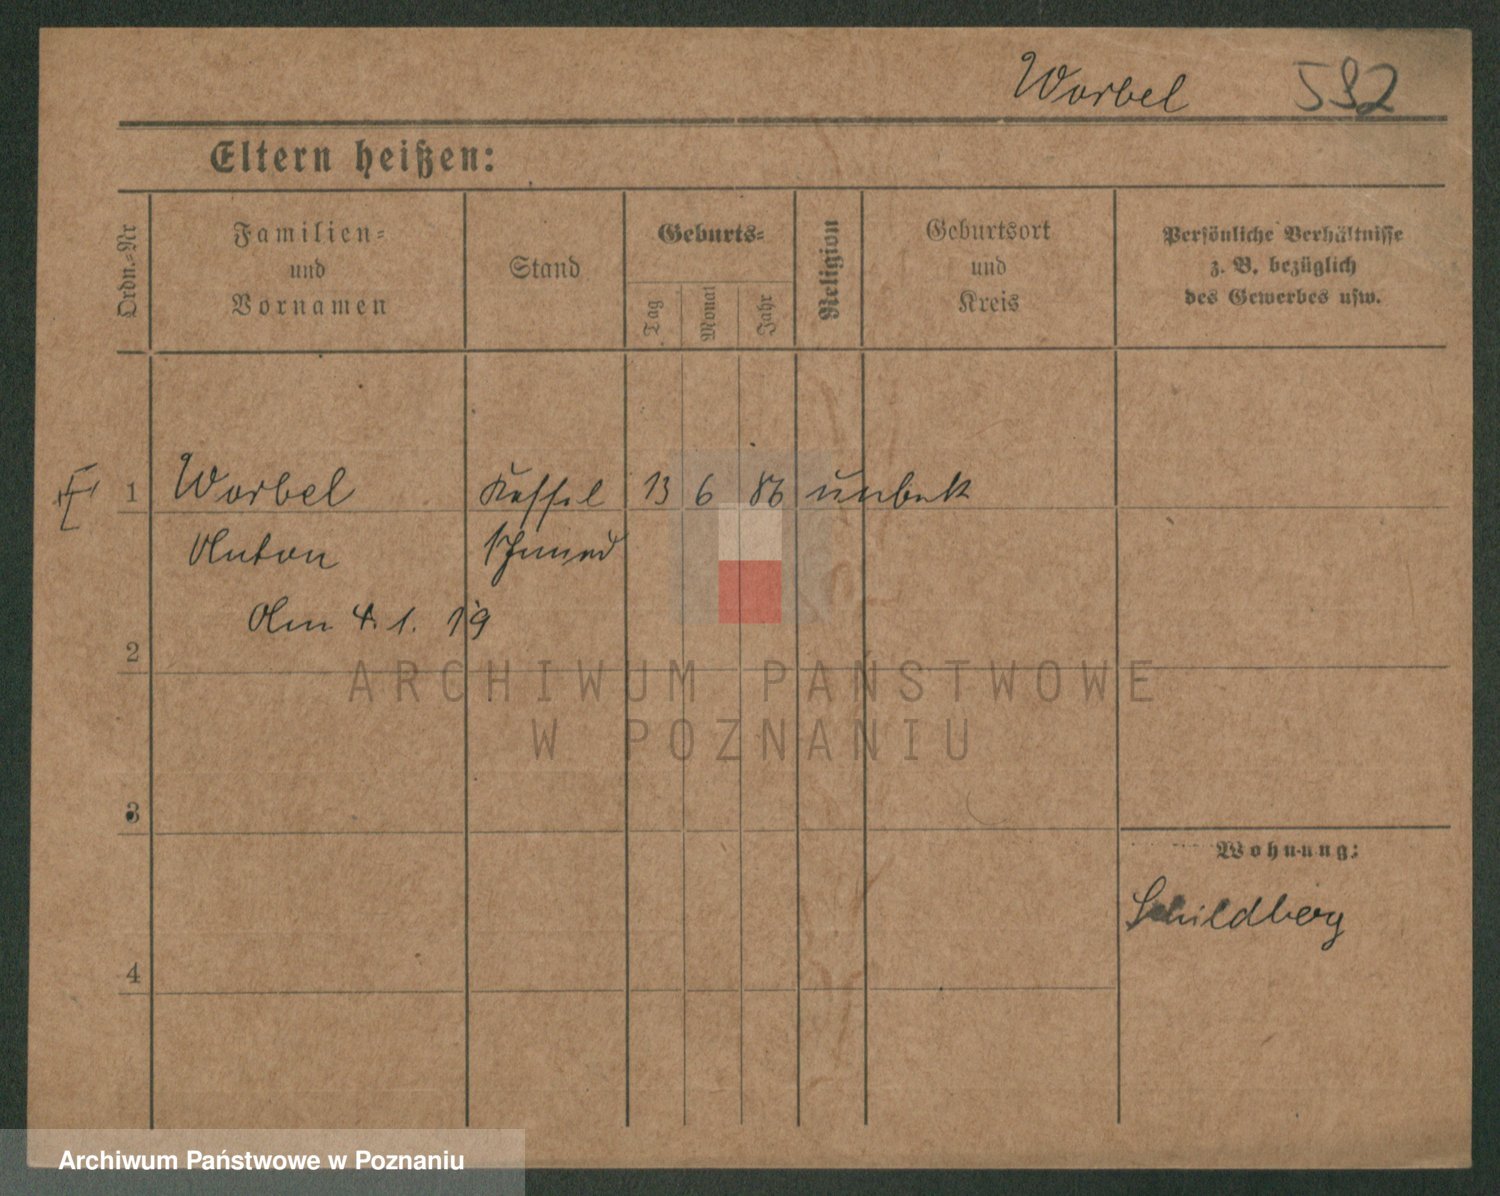 Worbel 592
Eltern heißen:
Ordn.-Nr
Familien-
und
Vornamen
Stand
Geburts-
Tag
Monat
Jahr
Religion
Geburtsort
und
Kreis
Persönliche Verhältnisse
z. B. bezüglich
des Gewerbes usw.
1 Worbel Kessel 13 6 86 unbek
Anton Schmied
Am 4. 1. 19
2
3
4
Wohnung:
Schildberg
ARCHIWUM PAŃSTWOWE
W POZNANIU
Archiwum Państwowe w Poznaniu